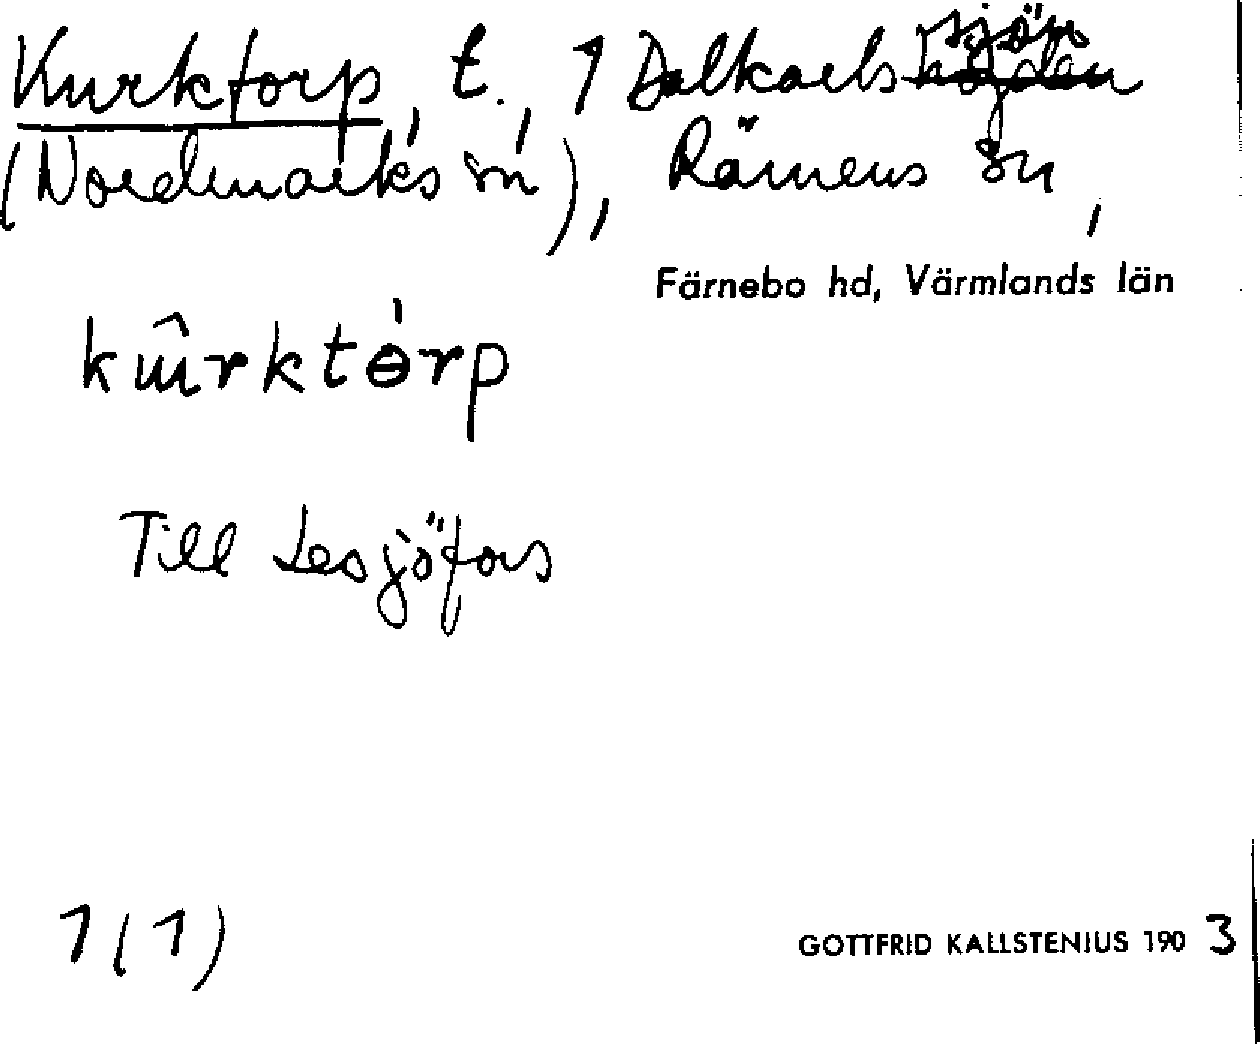 Kurktorp, t., 1 Dalkarlssjön
(Nordmarks sn), Rämens sn,
Färnebo hd, Värmlands län
kûrktòrp
Till Lesjöfors
1(1)
GOTTFRID KALLSTENIUS 1903